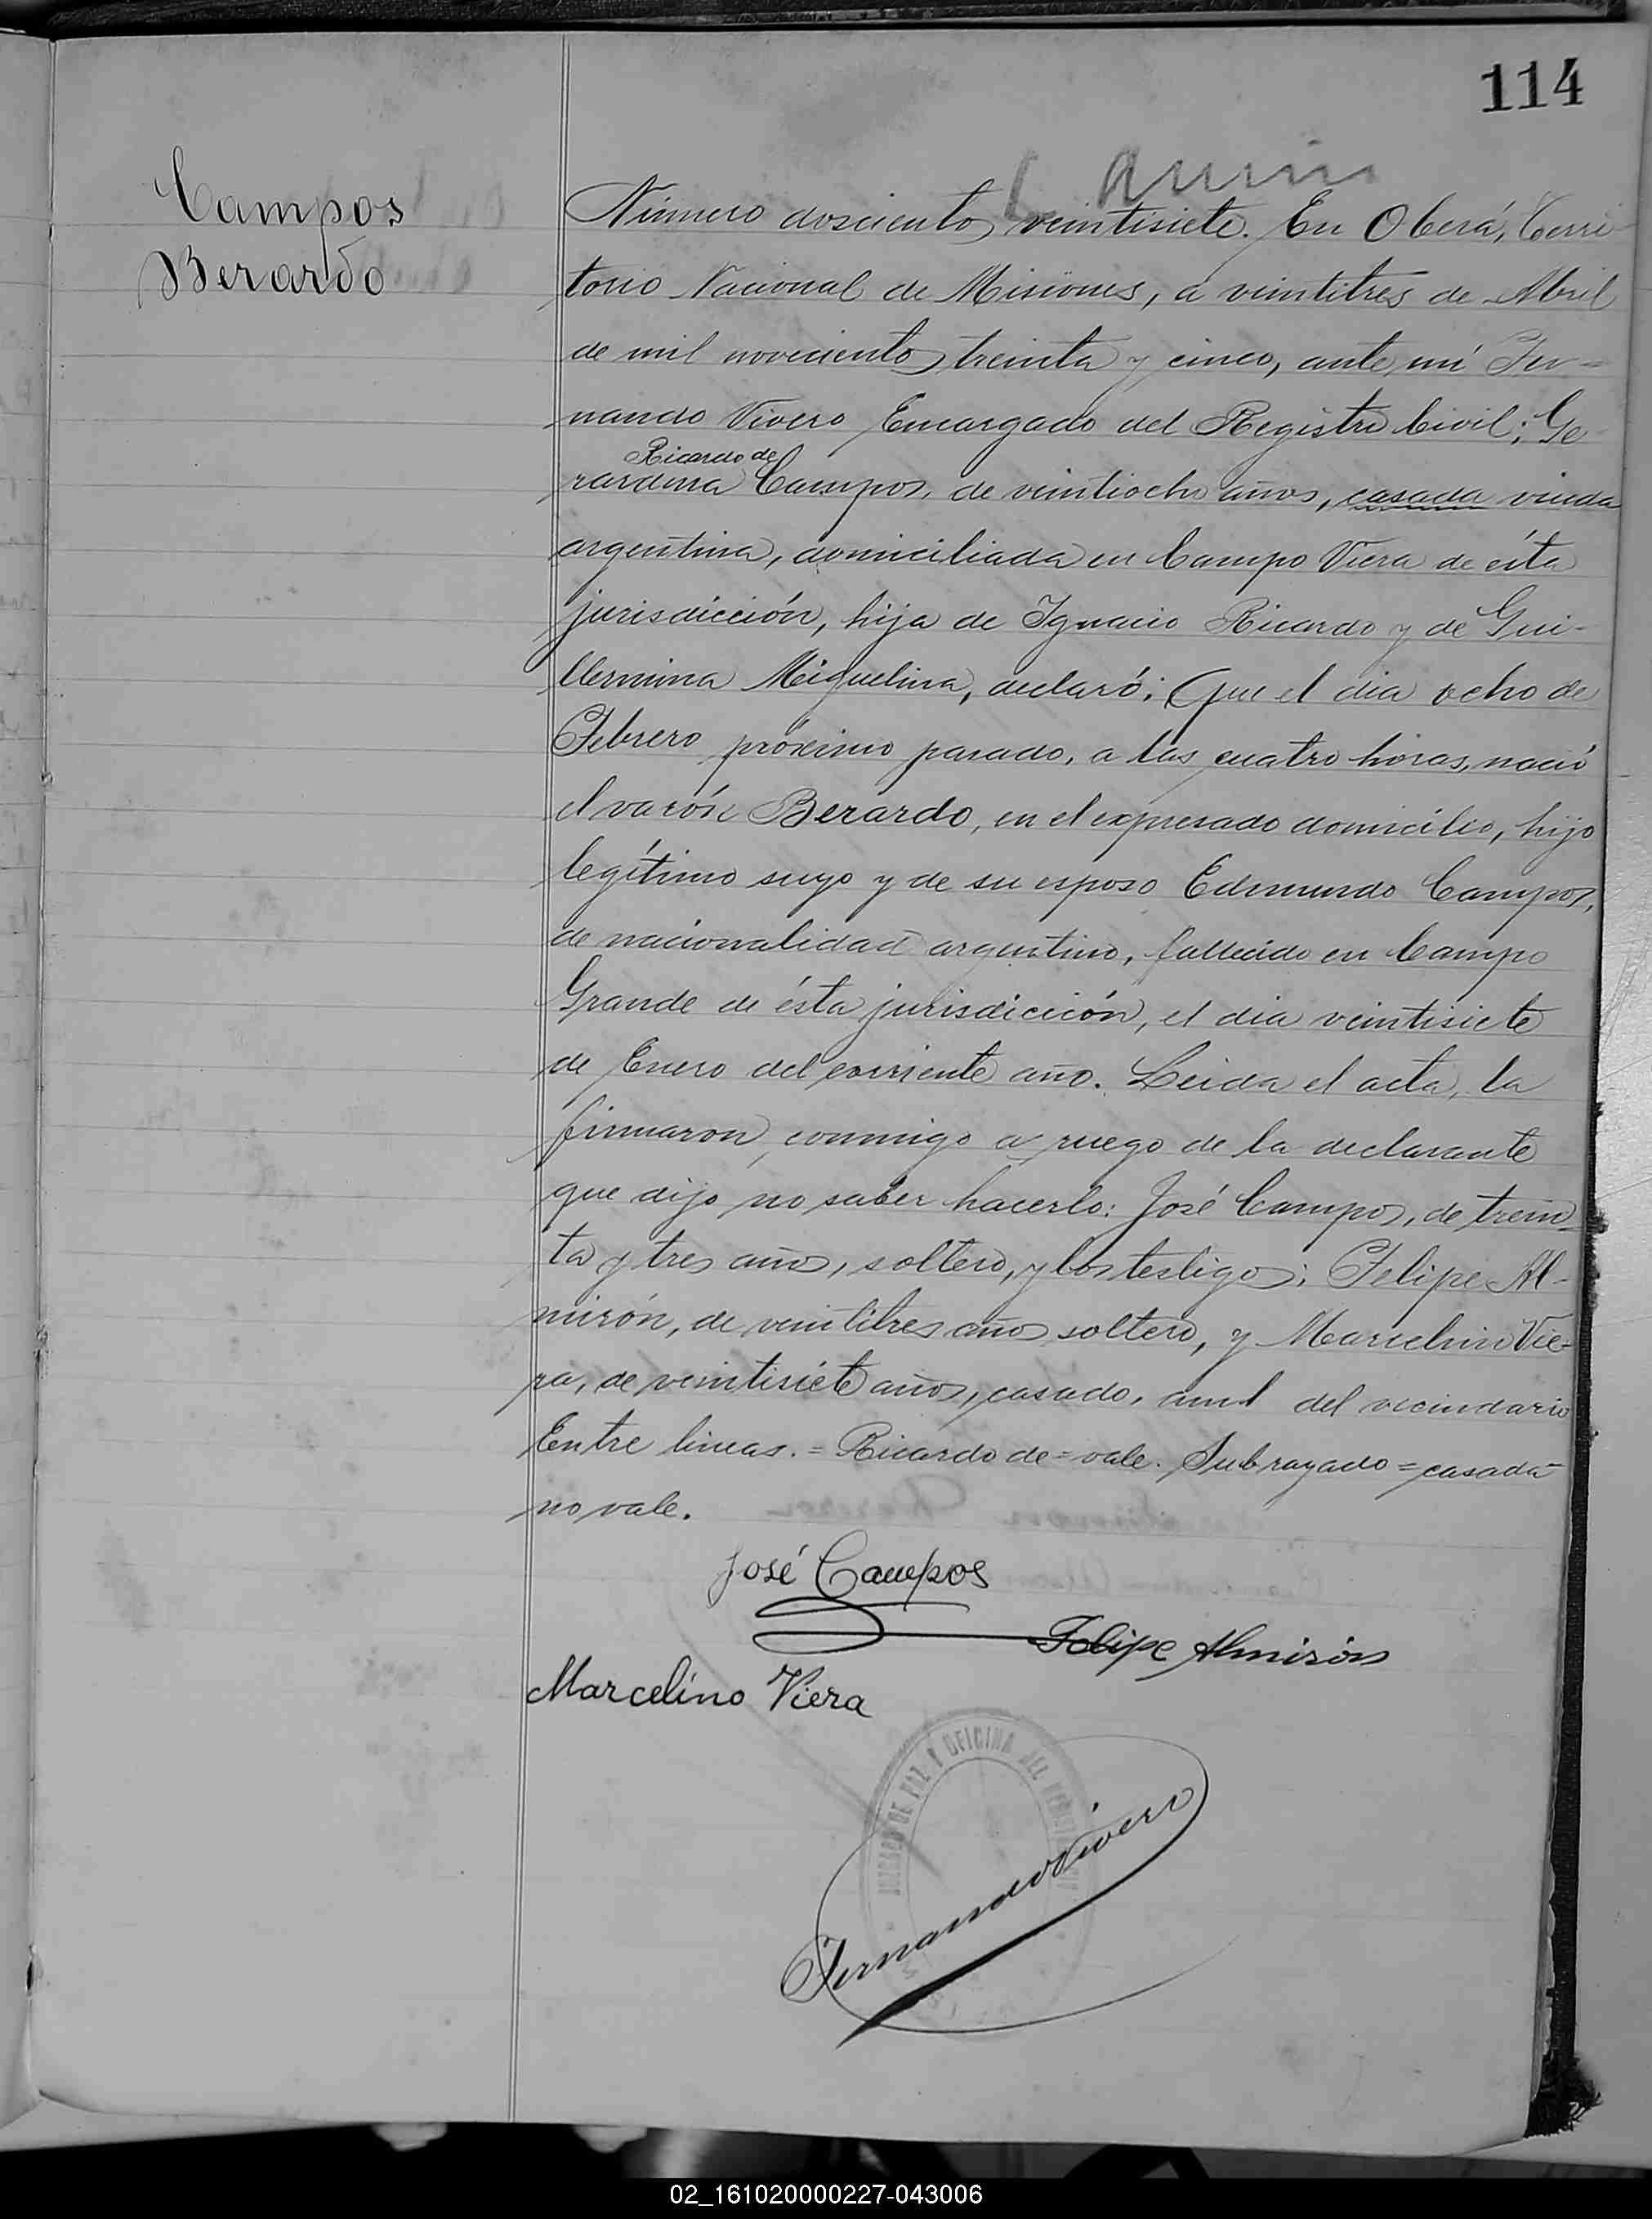 114
Campos
Berardo
Número doscientos veintisiete. En Oberá, Terri-
torio Nacional de Misiones, a veintitres de Abril
de mil novecientos treinta y cinco, ante mí Fer-
nando Vivero Encargado del Registro Civil; Ge-
Ricardo de
rardina Campos, de veintiocho años, casada viuda
argentina, domiciliada en Campo Viera de ésta
jurisdicción, hija de Ignacio Ricardo y de Gui-
llermina Miguelina, declaró: Que el dia ocho de
Febrero próximo pasado, a las cuatro horas, nació
el varón Berardo, en el expresado domicilio, hijo
legítimo suyo y de su esposo Edmundo Campos,
de nacionalidad argentino, fallecido en Campo
Grande de ésta jurisdicición, el dia veintisiete
de Enero del corriente año. Leida el acta, la
firmaron conmigo a ruego de la declarante
que dijo no saber hacerlo: José Campos, de trein-
ta y tres años, soltero, y los testigos: Felipe Al-
mirón, de veintitres años soltero, y Marcelino Vie-
ra, de veintisiete años, casado, del vecindario
Entre lineas.=Ricardo de=vale. Subrayado=casada
no vale.
José Campos
Felipe Almirón
Marcelino Viera
JUZGADO DE PAZ Y OFICINA DEL
Fernando Vivero
02_161020000227-043006